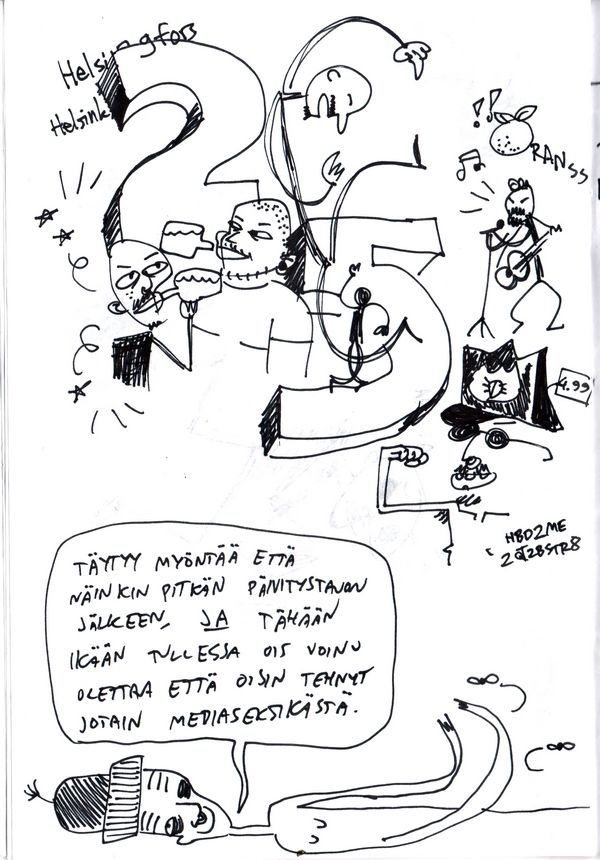 Helsingfors
Helsinki
25
!!
RANSS
4.99
HBD2ME
TÄYTYY MYÖNTÄÄ ETTÄ
NÄINKIN PITKÄN PÄNITYSTAUON
JÄLKEEN, JA TÄHÄÄN
IKÄÄN TULLESSA OIS VOINU
OLETTAA ETTÄ OISIN TEHNYT
JOTAIN MEDIASEKSIKÄSTÄ.